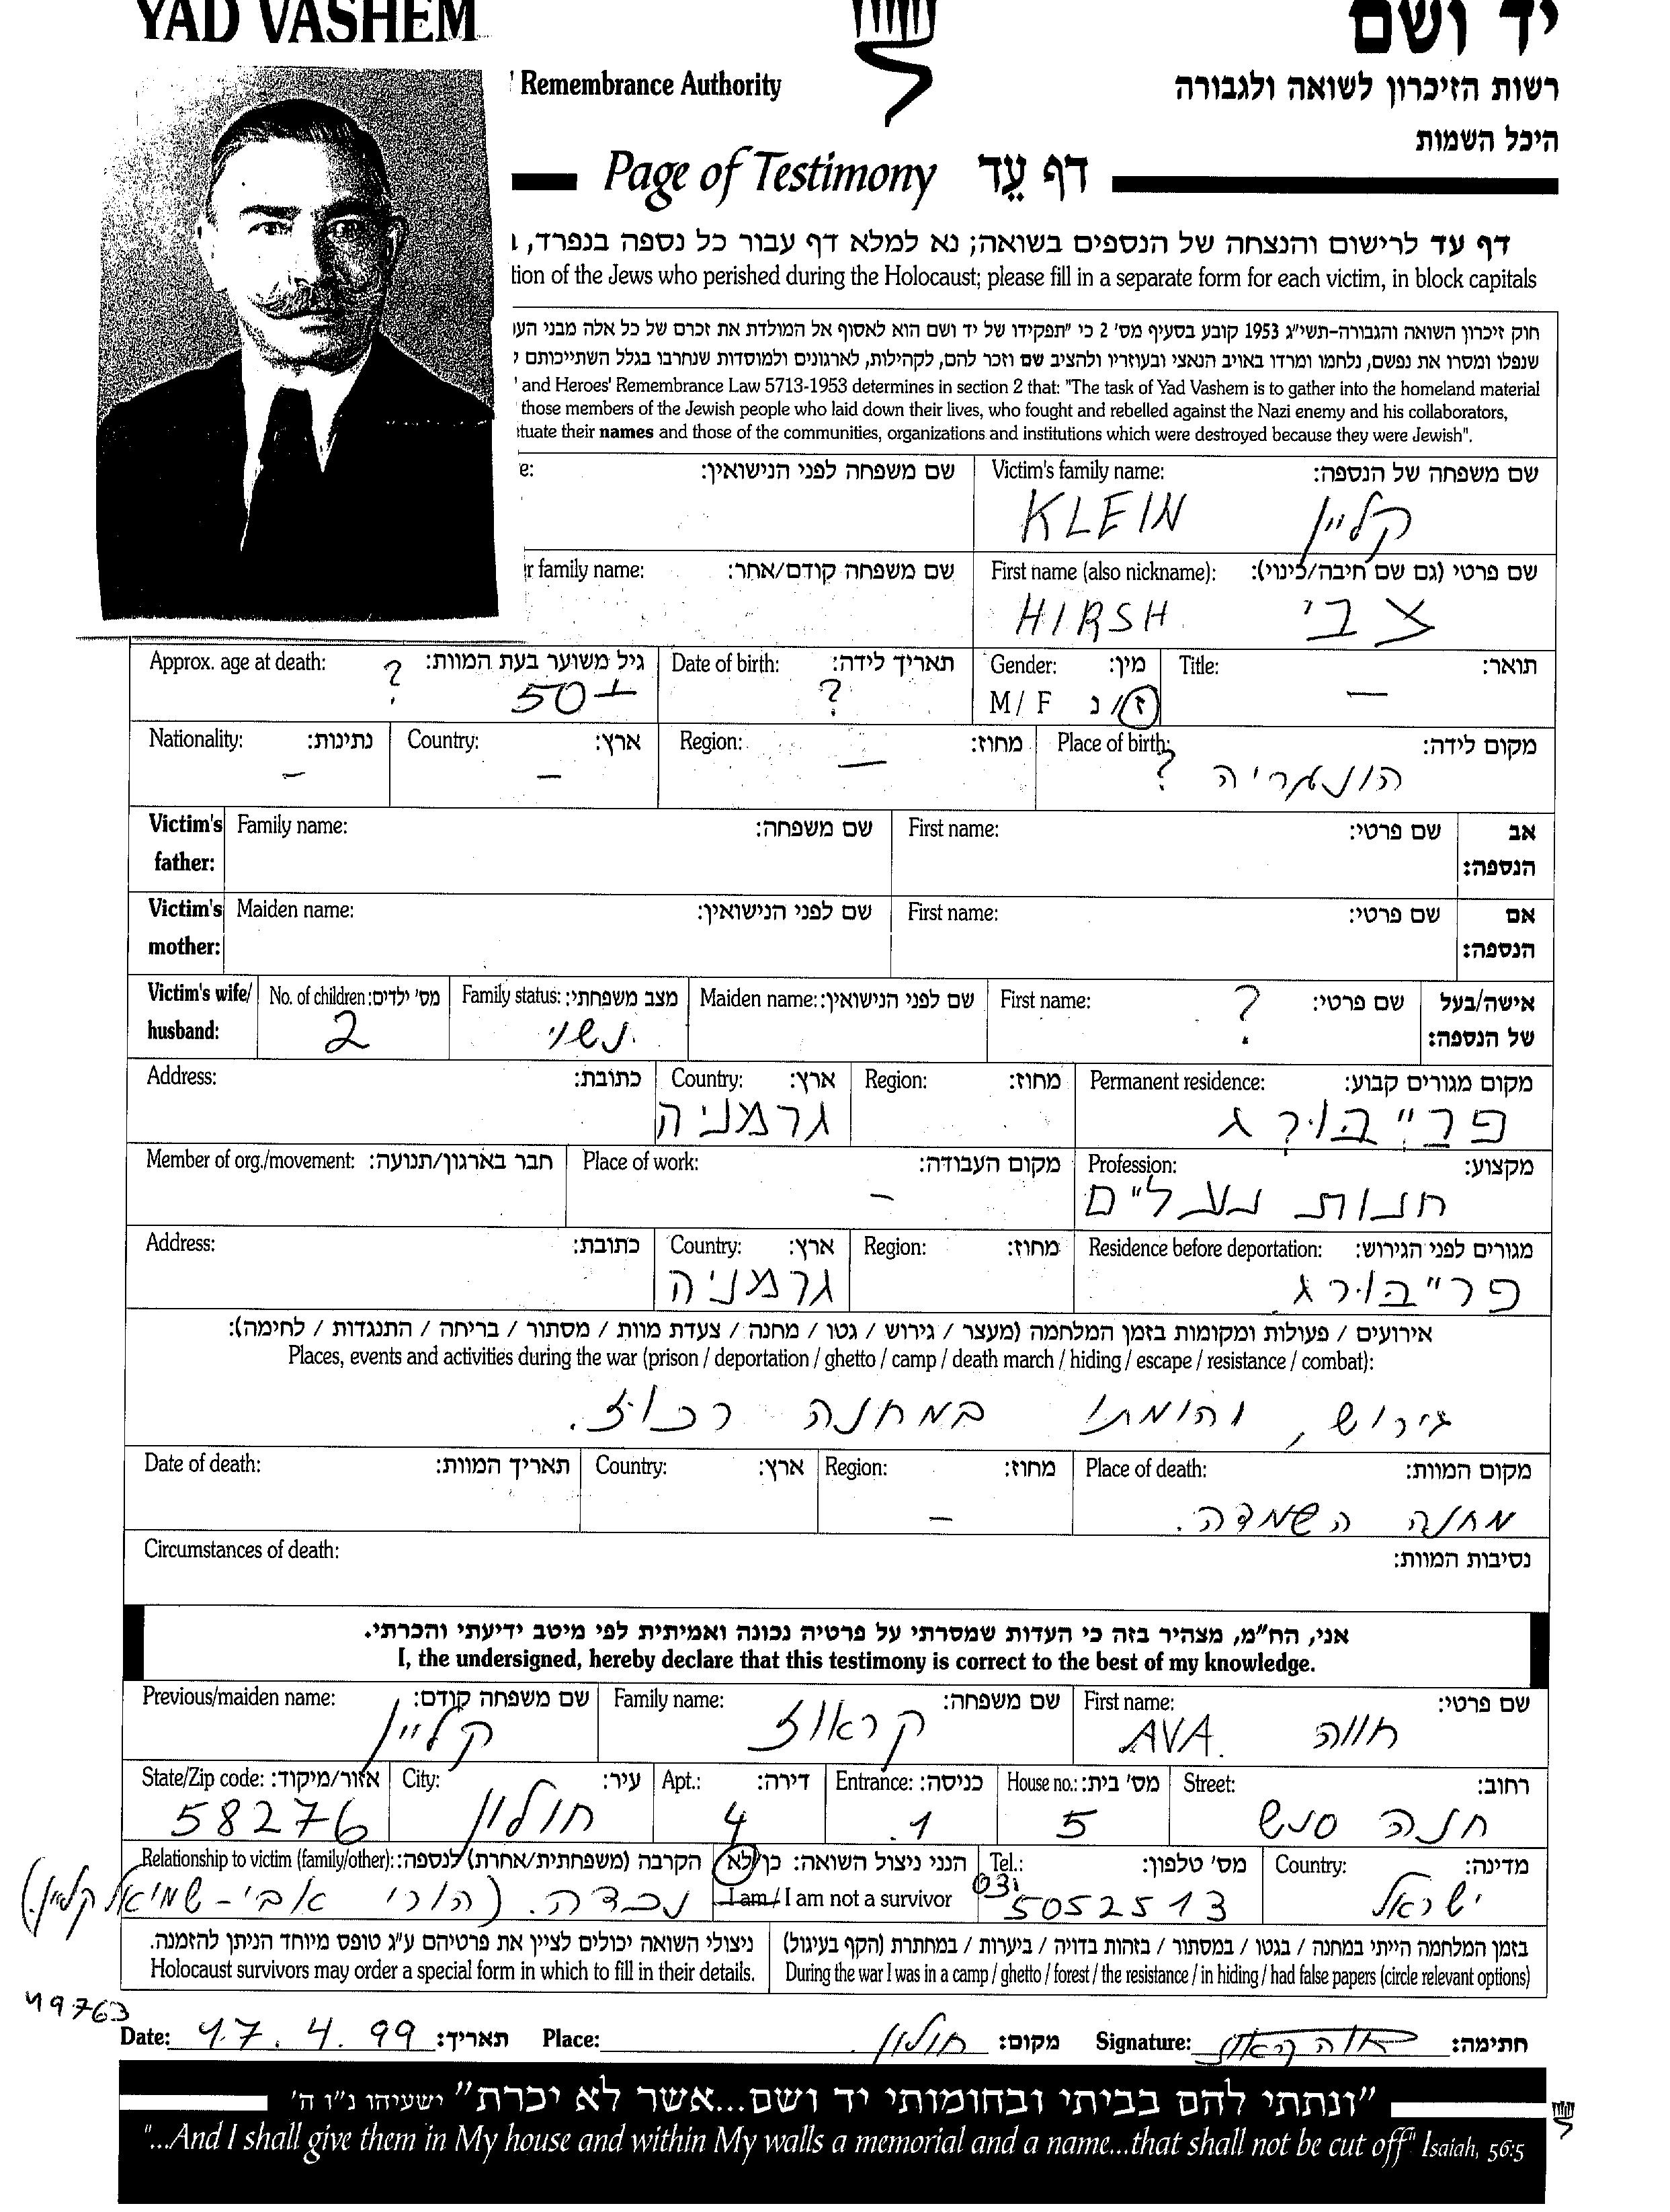 YAD VASHEM
יד ושם
Remembrance Authority
רשות הזיכרון לשואה ולגבורה
היכל השמות
Page of Testimony דף עֵד
דף עד לרישום והנצחה של הנספים בשואה; נא למלא דף עבור כל נספה בנפרד,
tion of the Jews who perished during the Holocaust; please fill in a separate form for each victim, in block capitals
חוק זיכרון השואה והגבורה-תשי״ג 1953 קובע בסעיף מס׳ 2 כי ״תפקידו של יד ושם הוא לאסוף אל המולדת את זכרם של כל אלה מבני העו
שנפלו ומסרו את נפשם, נלחמו ומרדו באויב הנאצי ובעוזריו ולהציב שם וזכר להם, לקהילות, לארגונים ולמוסדות שנחרבו בגלל השתייכותם
and Heroes' Remembrance Law 5713-1953 determines in section 2 that: "The task of Yad Vashem is to gather into the homeland material
those members of the Jewish people who laid down their lives, who fought and rebelled against the Nazi enemy and his collaborators,
tuate their names and those of the communities, organizations and institutions which were destroyed because they were Jewish".
שם משפחה של הנספה: Victim's family name: שם משפחה לפני הנישואין: e:
קליין KLEIN
שם פרטי (גם שם חיבה/כינוי): First name (also nickname): שם משפחה קודם/אחר: r family name:
צבי HIRSH
תואר: Title: מין: Gender: תאריך לידה: Date of birth: גיל משוער בעת המוות: Approx. age at death:
— ז/נ M/ F ? 50+ ?
מקום לידה: Place of birth: מחוז: Region: ארץ: Country: נתינות: Nationality:
הונגריה ? — — —
אב הנספה: שם פרטי: First name: שם משפחה: Family name: Victim's father:
אם הנספה: שם פרטי: First name: שם לפני הנישואין: Maiden name: Victim's mother:
אישה/בעל של הנספה: שם פרטי: First name: שם לפני הנישואין: Maiden name: מצב משפחתי: Family status: מס׳ ילדים: No. of children: Victim's wife/ husband:
? נשוי 2
מקום מגורים קבוע: Permanent residence: מחוז: Region: ארץ: Country: כתובת: Address:
פרייבורג גרמניה
מקצוע: Profession: מקום העבודה: Place of work: חבר בארגון/תנועה: Member of org./movement:
חנות נעליים —
מגורים לפני הגירוש: Residence before deportation: מחוז: Region: ארץ: Country: כתובת: Address:
פרייבורג גרמניה
אירועים / פעולות ומקומות בזמן המלחמה (מעצר / גירוש / גטו / מחנה / צעדת מוות / מסתור / בריחה / התנגדות / לחימה):
Places, events and activities during the war (prison / deportation / ghetto / camp / death march / hiding / escape / resistance / combat):
גירוש, והומתו במחנה רכוז.
מקום המוות: Place of death: מחוז: Region: ארץ: Country: תאריך המוות: Date of death:
מחנה השמדה. —
נסיבות המוות: Circumstances of death:
אני, הח״מ, מצהיר בזה כי העדות שמסרתי על פרטיה נכונה ואמיתית לפי מיטב ידיעתי והכרתי.
I, the undersigned, hereby declare that this testimony is correct to the best of my knowledge.
שם פרטי: First name: שם משפחה: Family name: שם משפחה קודם: Previous/maiden name:
חווה AVA. קראוז קליין
רחוב: Street: מס׳ בית: House no.: כניסה: Entrance: דירה: Apt.: עיר: City: אזור/מיקוד: State/Zip code:
חנה סנש 5 1. 4 חולון 58276
מדינה: Country: מס׳ טלפון: Tel.: הנני ניצול השואה: כן/לא I am / I am not a survivor הקרבה (משפחתית/אחרת) לנספה: Relationship to victim (family/other):
ישראל 03 5052513 נכדה. (הורי אבי - שמואל קליין.)
בזמן המלחמה הייתי במחנה / בגטו / במסתור / בזהות בדויה / ביערות / במחתרת (הקף בעיגול) ניצולי השואה יכולים לציין את פרטיהם ע״ג טופס מיוחד הניתן להזמנה.
During the war I was in a camp / ghetto / forest / the resistance / in hiding / had false papers (circle relevant options) Holocaust survivors may order a special form in which to fill in their details.
49763
חתימה: חוה קראוז Signature: מקום: חולון Place: תאריך: 17.4.99 Date:
״ונתתי להם בביתי ובחומותי יד ושם...אשר לא יכרת״ ישעיהו נ״ו ה׳
"...And I shall give them in My house and within My walls a memorial and a name...that shall not be cut off" Isaiah, 56:5